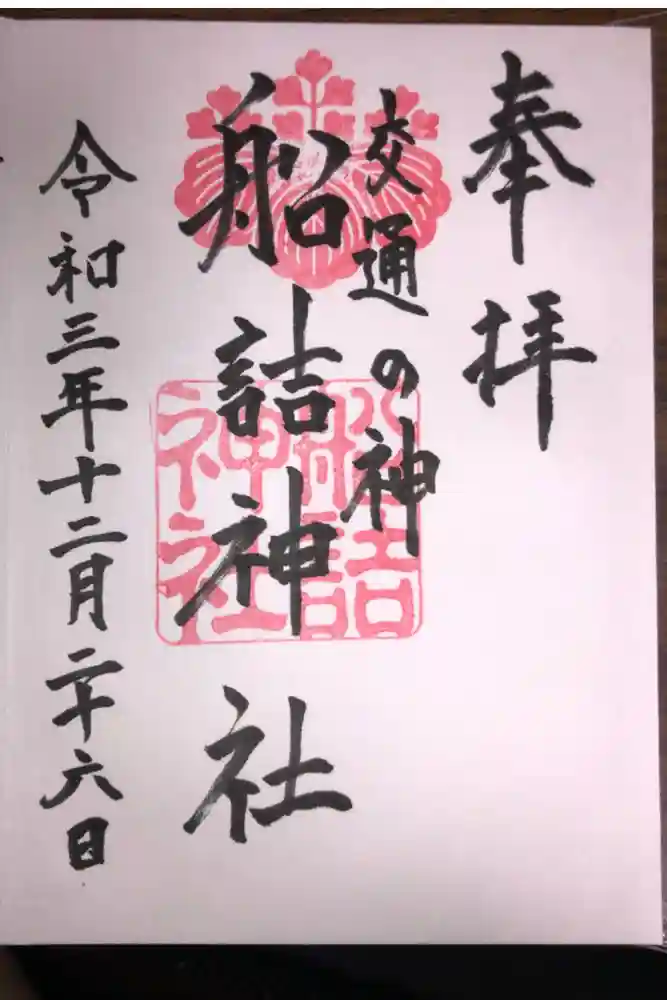 奉拝
交通の神
船詰神社
船詰
神社
令和三年十二月二十六日